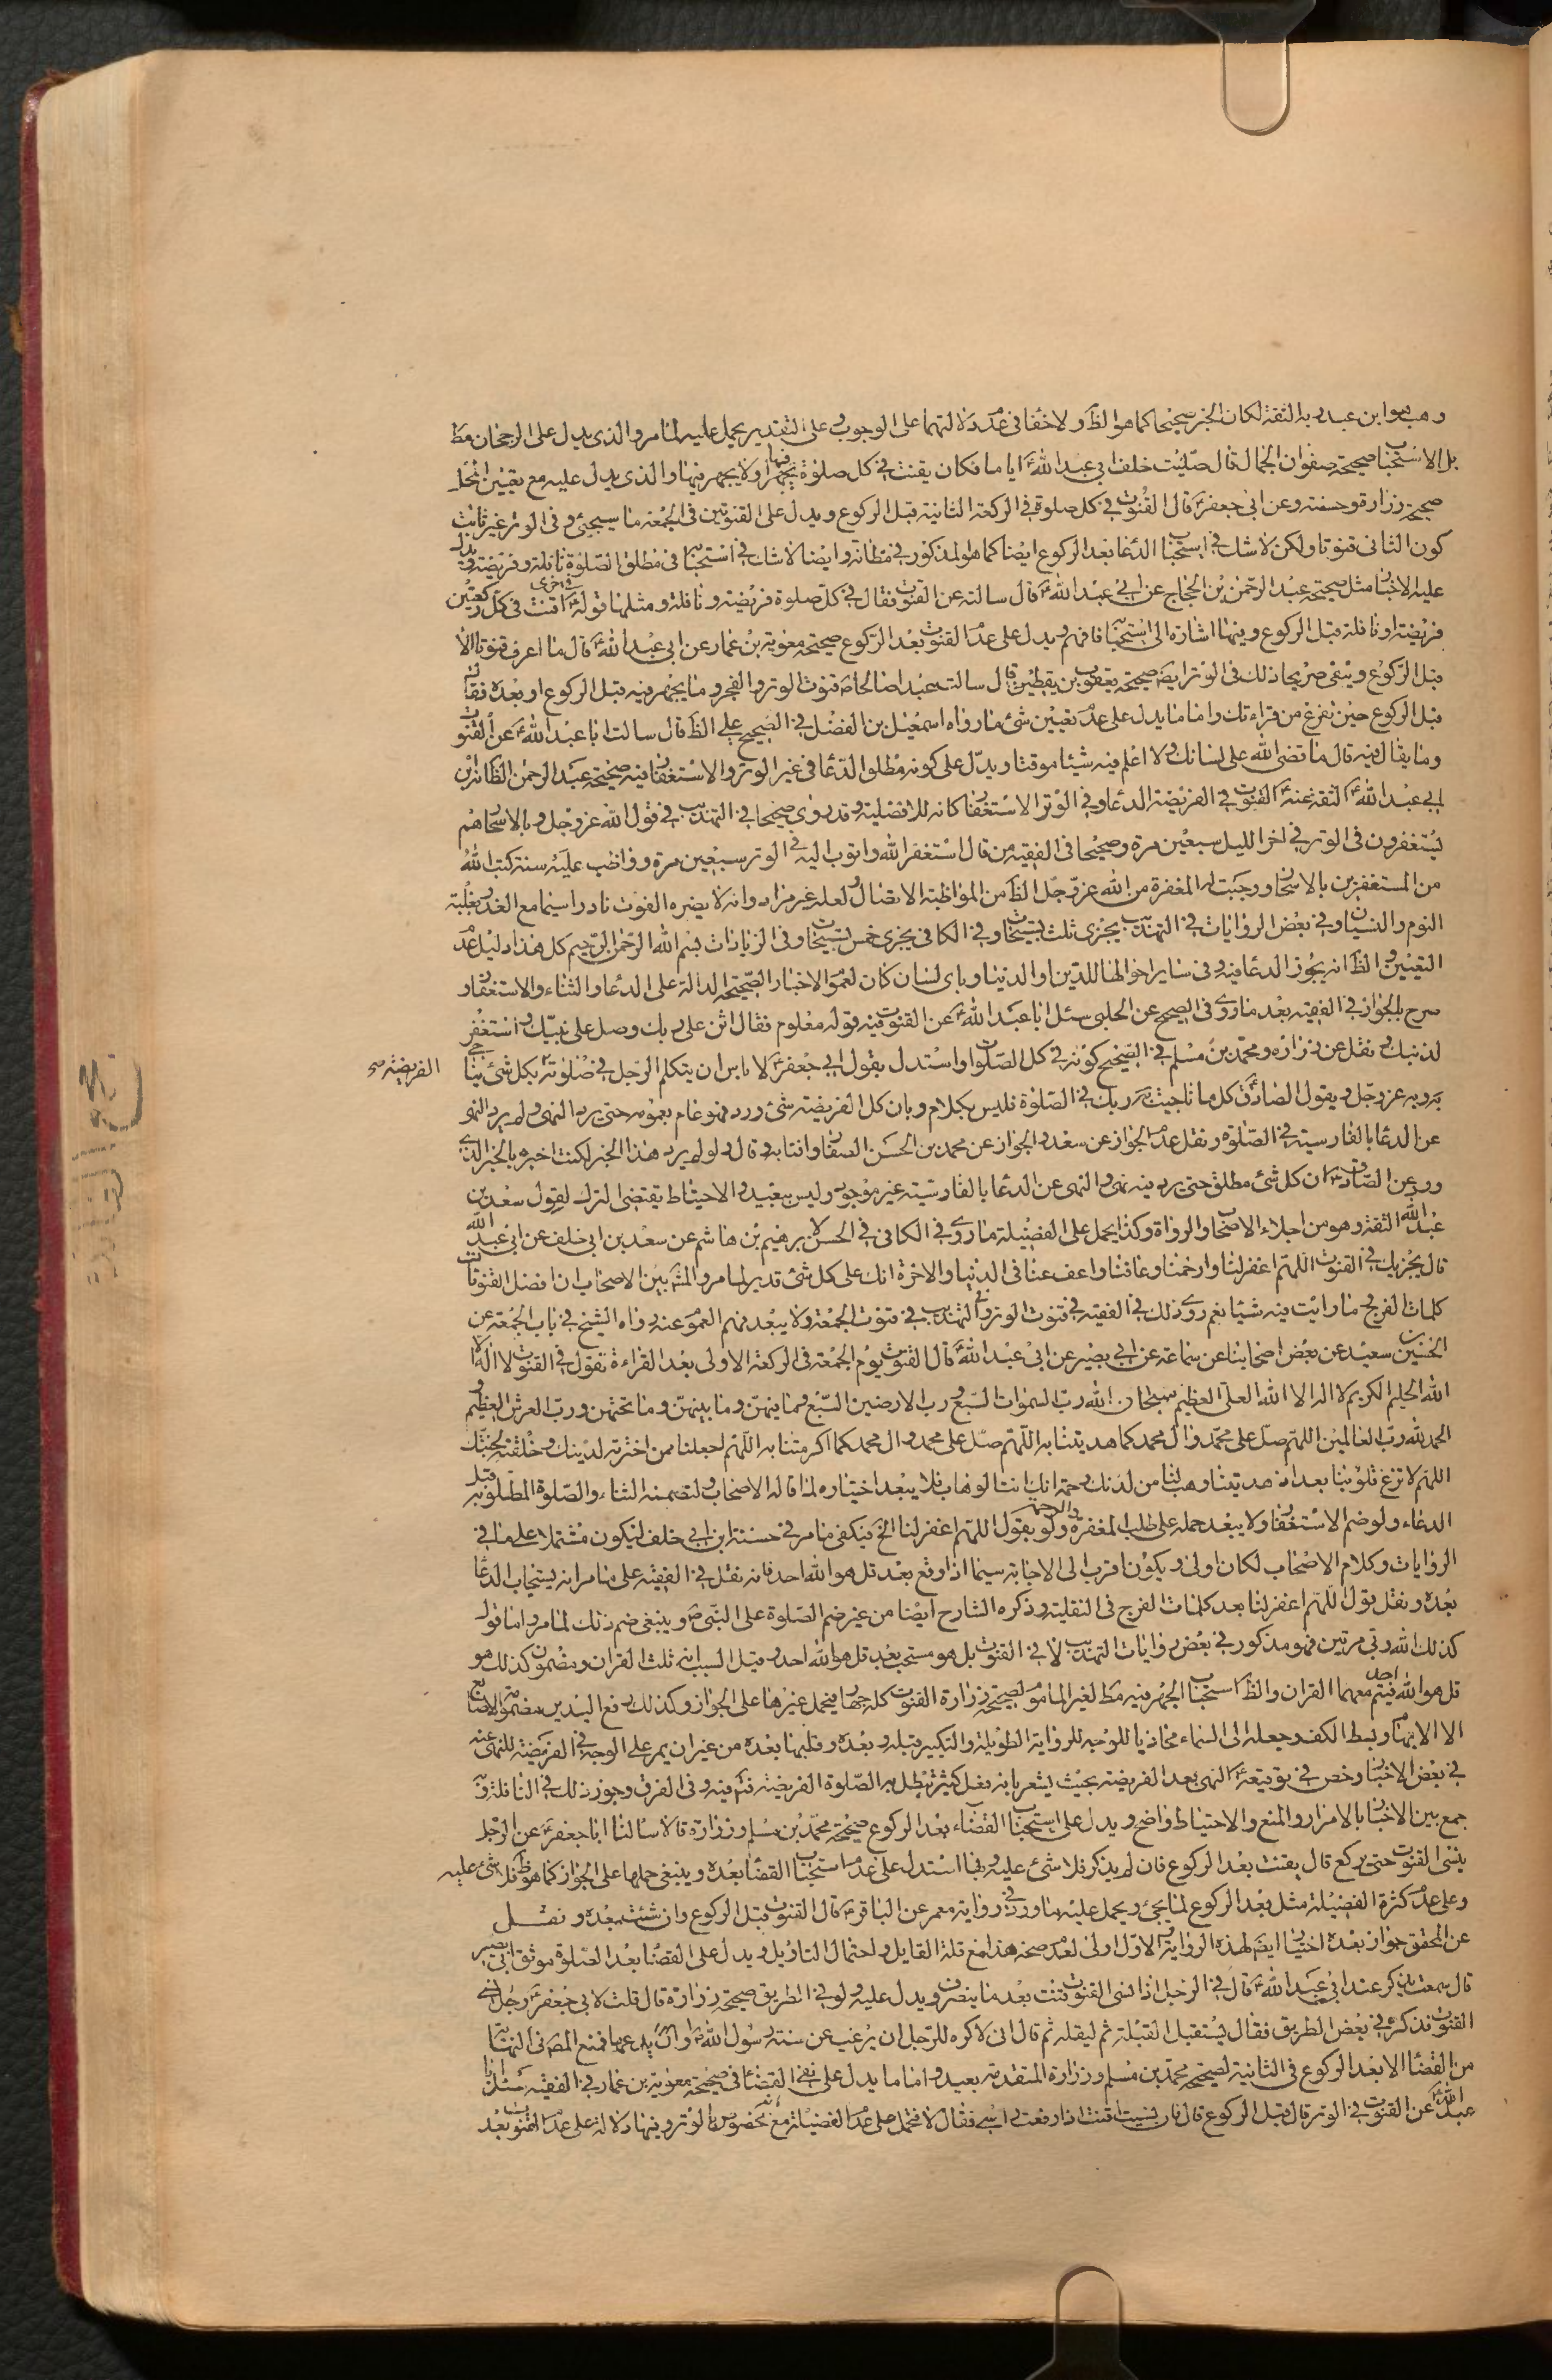 وهب هو ابن عبد ربه الثقة لكان الخبر صحيحا كما هو الظ ولا خفا في عدم دلالتهما على الوجوب وعلى التقدير يحمل عليه لما مر والذي يدل على الرجحان مط
بل الاستحباب صحيحة صفوان الجمال قال صليت خلف ابي عبد الله ع اياما فكان يقنت في كل صلوة يجهر فيها ولا يجهر فيها والذي يدل عليه مع تعيين المحل
صحيحة زرارة وحسنة وعن ابي جعفر ع قال القنوت في كل صلوة في الركعة الثانية قبل الركوع ويدل على القنوتين في الجمعة ما سيجئ وفي الوتر غير ثابت
كون الثاني قنوتا ولكن لا شك في استحباب الدعا بعد الركوع ايضا كما هو المذكور في مظانه وايضا لا شك في استحبابه في مطلق الصلوة نافلة وفريضة يدل
عليه الاخبار مثل صحيحة عبد الرحمن بن الحجاج عن ابي عبد الله ع قال سالته عن القنوت فقال في كل صلوة فريضة ونافلة ومثلها قوله ع اقنت في كل ركعتين
فريضة او نافلة قبل الركوع وفيهما اشارة الى استحباب فافهم ويدل على عدم القنوت بعد الركوع صحيحة معوية بن عمار عن ابي عبد الله ع قال ما اعرف قنوتا الا
قبل الركوع وينفي صريحا ذلك في الوتر ايضا صحيحة يعقوب بن يقطين قال سالت عبدا صالحا ع قنوت الوتر والفجر وما يجهر فيه قبل الركوع او بعده فقال
قبل الركوع حين تفرغ من قراءتك واما ما يدل على عدم تعيين شئ ما رواه اسمعيل بن الفضل في الصحيح على الظ قال سالت ابا عبد الله ع عن القنوت
وما يقال فيه قال ما قضى الله على لسانك ولا اعلم فيه شيئا موقتا ويدل على كونه مطلق الدعا في غير الوتر والاستغفار فيه صحيحة عبد الرحمن الظ انه ابن
ابي عبد الله الثقة عنه ع القنوت في الفريضة الدعا وفي الوتر الاستغفار كانه للافضلية وقد روى صحيحا في التهذيب في قول الله عز وجل وبالاسحار هم
يستغفرون في الوتر في اخر الليل سبعين مرة وصحيحا في الفقيه من قال استغفر الله واتوب اليه في الوتر سبعين مرة وواظب عليه سنة كتب الله
من المستغفرين بالاسحار ووجبت له المغفرة من الله عز وجل الظ من المواظبة الاتصال ولعله غير مراد وانه لا يضره الفوت نادرا سيما مع العذر بغلبة
النوم والنسيان وفي بعض الروايات في التهذيب يجزي ثلث تسبيحات وفي الكافي يجزي خمس تسبيحات وفي الزيادات بسم الله الرحمن الرحيم كل هذا دليل عدم
التعيين والظ انه يجوز الدعا فيه وفي ساير احوالها للدين او الدنيا وباي لسان كان لعموم الاخبار الصحيحة الدالة على الدعا والثناء والاستغفار و
صرح بالجواز في الفقيه بعد ما روى في الصحيح عن الحلبي سئل ابا عبد الله ع عن القنوت فيه قول معلوم فقال اثن على ربك وصل على نبيك واستغفر
لذنبك ونقل عن زرارة ومحمد بن مسلم في الصحيح كونه في كل الصلوات واستدل بقول ابي جعفر ع لا باس ان يتكلم الرجل في صلوته بكل شئ يناجي
الفريضة صح
به ربه عز وجل وبقول الصادق ع كل ما ناجيت به ربك في الصلوة فليس بكلام وبان كل الفريضة شئ ورد فهو عام بعمومه حتى يرد النهي ولم يرد النهي
عن الدعا بالفارسية في الصلوة ونقل عدم الجواز عن سعد والجواز عن محمد بن الحسن الصفار وافتا به وقال ولو لم يرد هذا الخبر لكنت اخبره بالخبر الذي
روى عن الصادق ع ان كل شئ مطلق حتى يرد فيه نهى والنهى عن الدعا بالفارسية غير موجود وليس ببعيد والاحتياط يقتضي الترك لقول سعد بن
عبد الله الثقة وهو من اجلاء الاصحاب والرواة وكذا يحمل على الفضيلة ما روى في الكافي في الحسن لابرهيم بن هاشم عن سعد بن ابي خلف عن ابي عبد الله
قال يجزيك في القنوت اللهم اغفر لنا وارحمنا وعافنا واعف عنا في الدنيا والاخرة انك على كل شئ قدير لما مر والمشهور بين الاصحاب ان افضل القنوتات
كلمات الفرج ما رايت فيه شيئا نعم روى ذلك في الفقيه في قنوت الوتر والتهذيب في قنوت الجمعة ولا يبعد فهم العموم عنه رواه الشيخ في باب الجمعة عن
الحسين بن سعيد عن بعض اصحابنا عن سماعة عن ابي بصير عن ابي عبد الله ع قال القنوت يوم الجمعة في الركعة الاولى بعد القراءة تقول في القنوت لا اله الا
الله الحليم الكريم لا اله الا الله العلي العظيم سبحان الله رب السموات السبع ورب الارضين السبع وما فيهن وما بينهن وما تحتهن ورب العرش العظيم و
الحمد لله رب العالمين اللهم صل على محمد وال محمد كما هديتنا به اللهم صل على محمد وال محمد كما اكرمتنا به اللهم اجعلنا ممن اخترته لدينك وخلقته لجنتك
اللهم لا تزغ قلوبنا بعد اذ هديتنا وهب لنا من لدنك رحمة انك انت الوهاب فلا يبعد اختياره لما قاله الاصحاب ولتضمنه الثناء والصلوة المطلوبة قبل
الدعاء ولو ضم الاستغفار ولا يبعد حمله على طلب المغفرة والرحمة ولو بقول اللهم اغفر لنا الخ فيكفي ما مر في حسنة ابن ابي خلف ليكون مشتملا على ما في
الروايات وكلام الاصحاب لكان اولى ويكون اقرب الى الاجابة سيما اذا وقع بعد قل هو الله احد فانه نقل في الفقيه على ما مر انه يستجاب الدعا
بعده ونقل قول اللهم اغفر لنا بعد كلمات الفرج في النفلية وذكره الشارح ايضا من غير ضم الصلوة على النبي ص وينبغي ضم ذلك لما مر واما قول
كذلك الله ربي مرتين فهو مذكور في بعض روايات التهذيب لا في القنوت بل هو مستحب بعد قل هو الله احد وقيل السبب انه ثلث القران ومضمون كذلك هو
قل هو الله احد فيتم معهما القران والظ استحباب الجهر فيه مط لغير الماموم لصحيحة زرارة القنوت كله جهار فيحمل غيرها على الجواز وكذلك رفع اليدين مضمومة الاصابع
الا الابهام وبسط الكف وجعله الى السماء محاذيا للوجه للرواية الطويلة والتكبير قبله وبعده وقلبهما بعده من غير ان يمر على الوجه في الفريضة للنهي عنه
في بعض الاخبار وخص في توقيعه ع النهي بعد الفريضة بحيث يشعر بانه فعل كثير تبطل به الصلوة الفريضة فتم فيه وفي الفرق وجوز ذلك في النافلة و
جمع بين الاخبار بالامرار والمنع والاحتياط واضح ويدل على استحباب القضاء بعد الركوع صحيحة محمد بن مسلم وزرارة قالا سالنا ابا جعفر ع عن الرجل
ينسى القنوت حتى يركع قال يقنت بعد الركوع فان لم يذكر فلا شئ عليه وبها استدل على عدم استحباب القضا بعده وينبغي حملها على الجواز كما هو ظ فلا شئ عليه
وعلى عدم كثرة الفضيلة مثل بعد الركوع لما يجئ ويحمل عليه ما ورد في رواية معمر عن الباقر ع قال القنوت قبل الركوع وان شئت بعده ونقل
عن المحقق جواز بعده اختيارا ايضا لهذه الرواية والاول اولى لعدم صحة هذا مع قلة القايل واحتمال التاويل ويدل على القضا بعد الصلوة موثق ابي بصير
قال سمعت يذكر عند ابي عبد الله ع قال في الرجل اذا نسى القنوت قنت بعد ما ينصرف ويدل عليه ولو في الطريق صحيحة زرارة قال قلت لابي جعفر ع رجل نسى
القنوت فذكره في بعض الطريق فقال يستقبل القبلة ثم ليقله ثم قال اني لاكره للرجل ان يرغب عن سنة رسول الله ص او يدعها فمنع المص في المنتهى
من القضا الا بعد الركوع في الثانية لصحيحة محمد بن مسلم وزرارة المتقدمة بعيد واما ما يدل على نفي القضا في صحيحة معوية بن عمار في الفقيه سئل ابا
عبد الله ع عن القنوت في الوتر قال قبل الركوع قال فان نسيت اقنت اذا رفعت راسي فقال لا فتحمل على عدم الفضيلة مع انه مخصوص بالوتر وفيها دلالة على عدم القنوت بعد